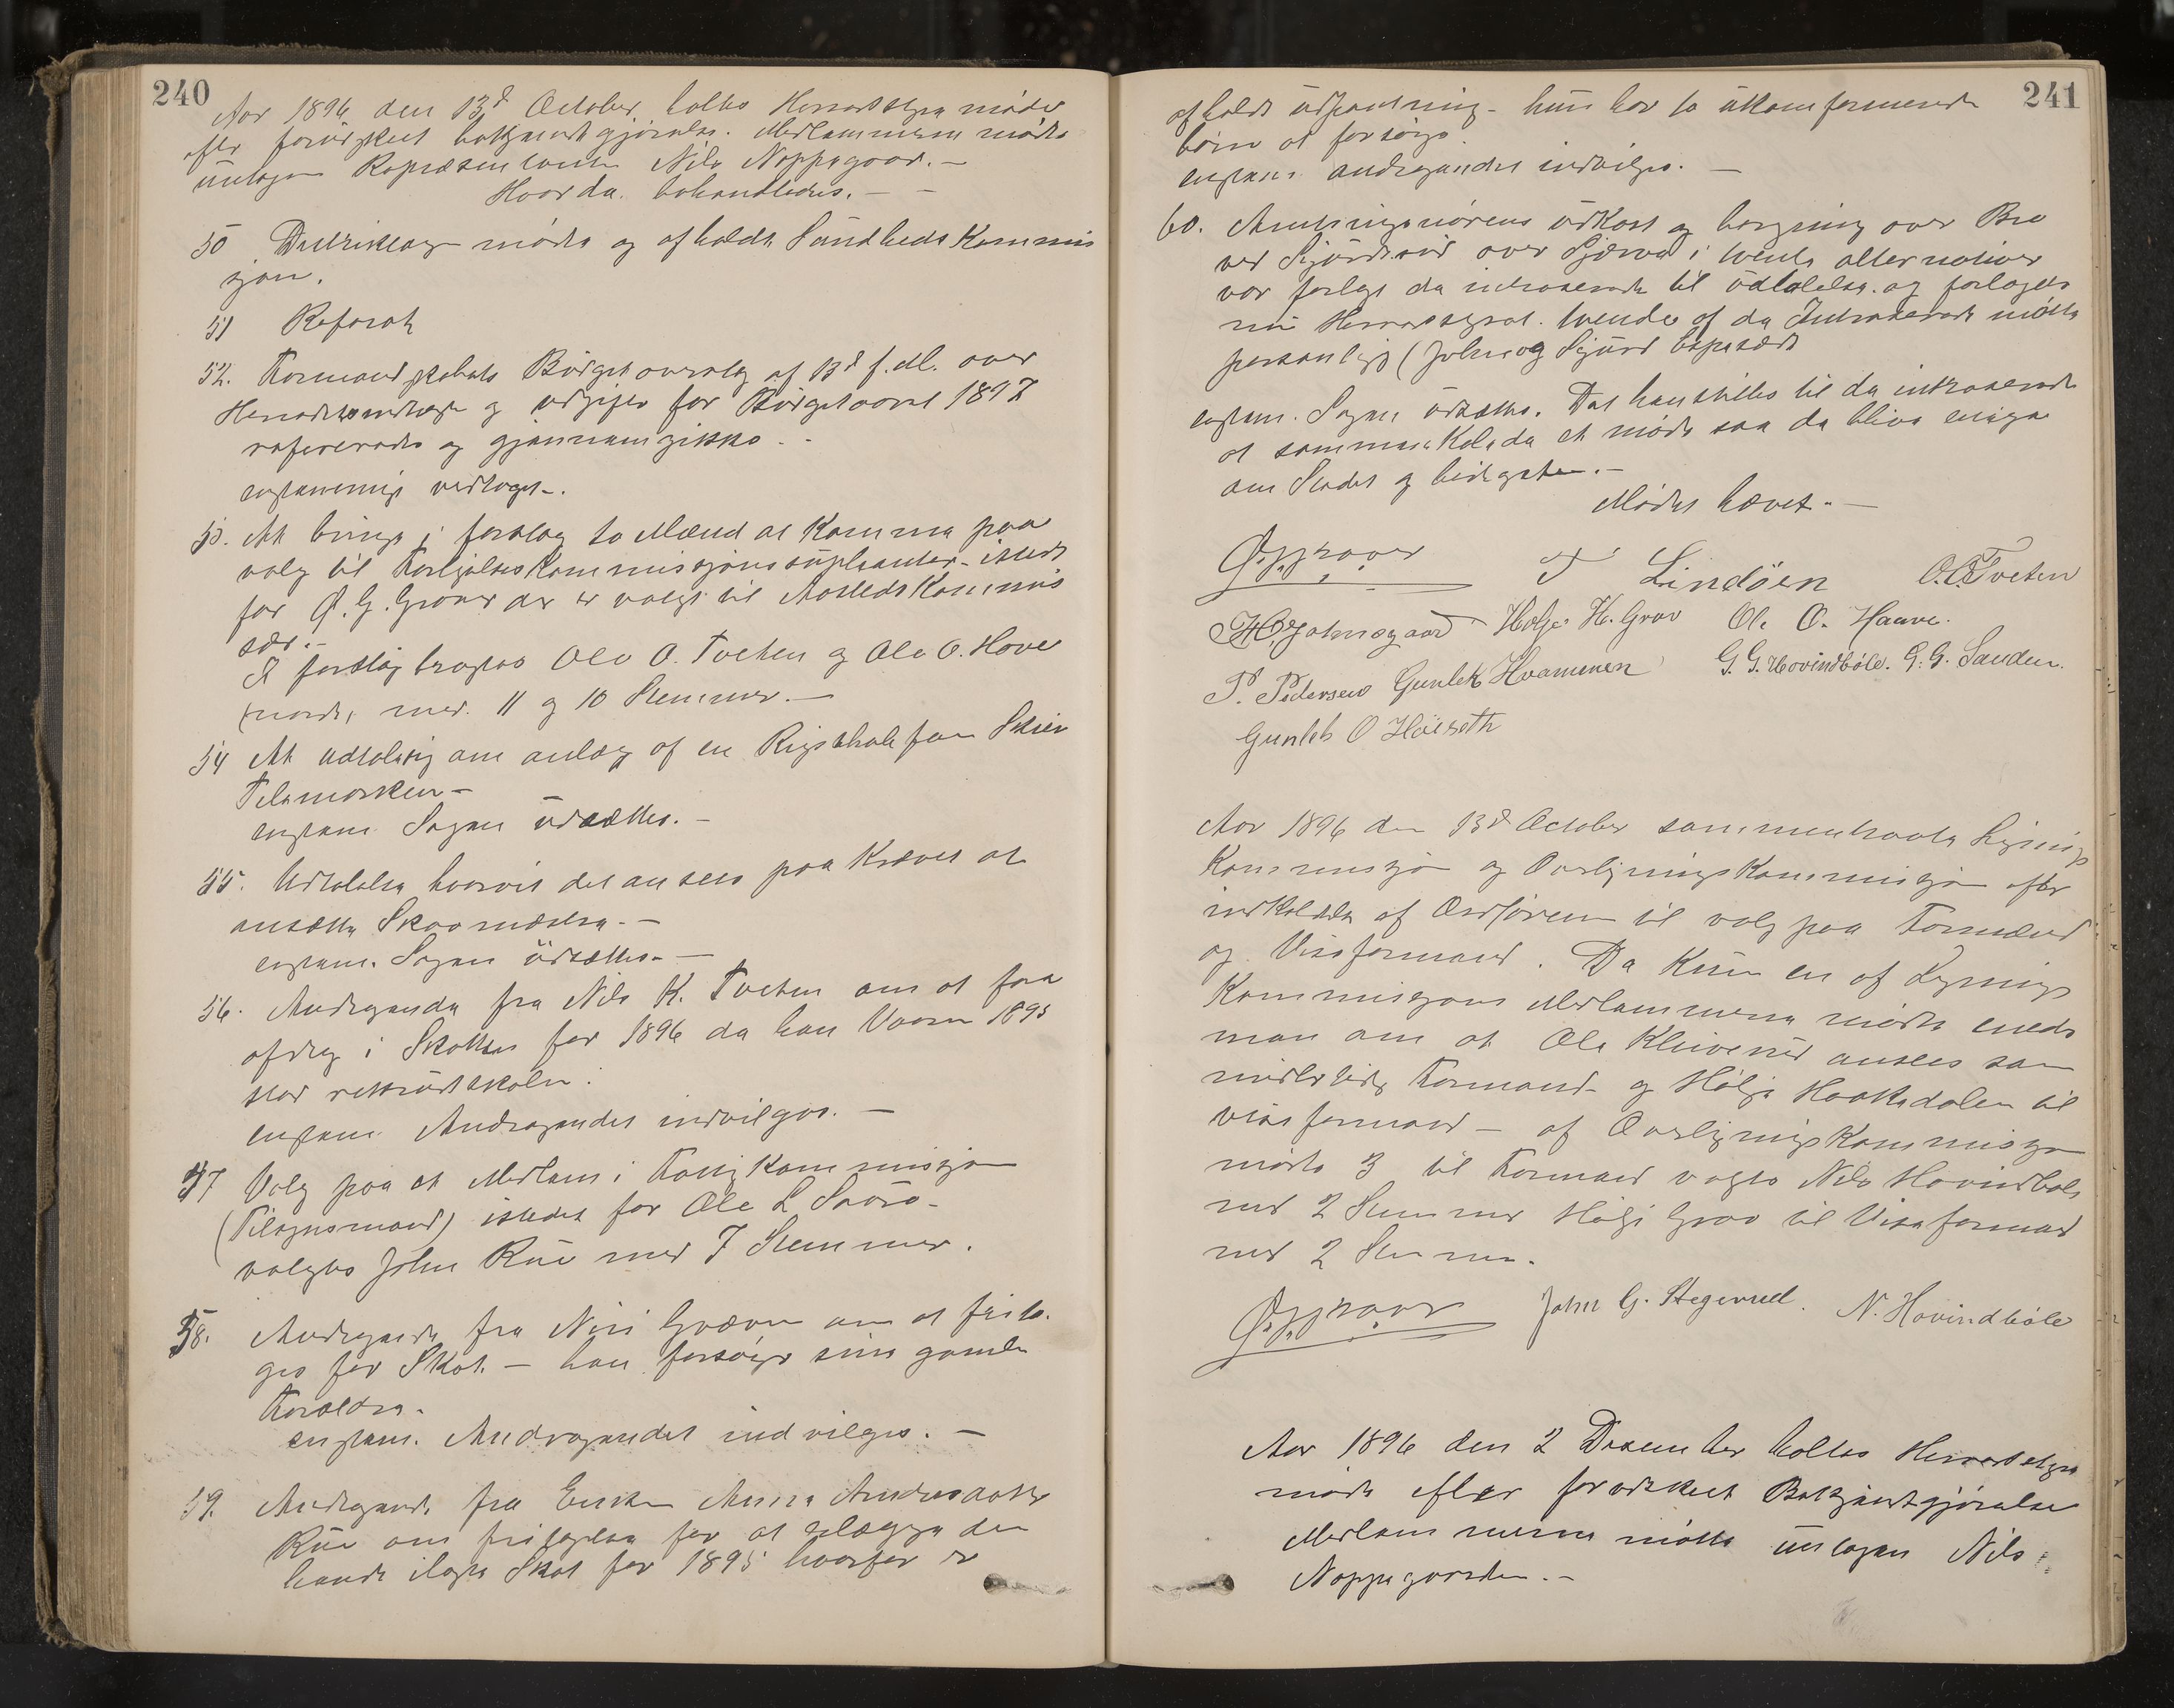 240
Aar 1896 den 13d October holtes Herredsstyre møde
efter forudgaaet bekjændtgjørelse. Medlemmerne mødte
untagen Repræsentanten Nils Noppegaar. —
Hvor da behandledes. — —
50 Distriktslægen mødte og afholdt Sundheds Kommis
sjon.
51 Referat
52. Formandskabets Büdgetoverslag af 13d f. M. over
Herredets indtægter og udgifter for Büdgetaaret 1897
refereredes og gjennemgikkes. -
enstemmig vedtaget. -
53. At bringe i forslag to Mænd at komme paa
valg til Forligelseskommissjons süpleanter. istedet
for Ø. G. Graver der er valgt til Forligelses Kommis
sær. -
I forslag bragtes Ole O. Tveten og Ole O. Hove
med 11 og 10 Stemmer. —
54 At udtale sig om anlæg af en Rigstelefon Skien
Telemarken —
enstem. Sagen üdsættes. —
55. Udtalelse hvorvidt det ansees paa Krævet at
ansætte Skovmester. —
enstem. Sagen üdsættes. —
56. Andragende fra Nils K. Tveten om at faa
afdrag i Skatten for 1896 da han Vaaren 1895
enstem. Andragendet indvilges. —
57 Valg paa et Medlem i Fattigkommissjon
(Tilsynsmand) istedet for Ole L
valgtes John Rüe med 7 Stemmer.
58. Andragende fra om at frita-
ges for Skat. — han forsørger sine gamle
Forældre.
enstem. Andragendet indvilges. —
59. Andragende fra Enken Anna Andersdatter
Rüe om fritagelse for at udlægge den
hende ilagte Skat for 1895 hvorfor er
241
afholdt üdpantning - hün har to ükonfirmerede
børn at forsørge.
enstem. andragendet indvilges. —
60. Amtsingeniørens üdkast og beregning over Bro
ved over i tvende alternativer
var forlagt de interesserede til üdtalelse og forlagdes
nü Herredsstyret. tvende af de Interesserede mødte
personligt (John og
enstem. Sagen üdsættes. Det henstilles til de interesserede
at sammenkalde et møde saa de blive enige
om Stedet og bidragene. —
Mødet hævet. —
Ø. G. Graver T Lindöen O. O. Tveten
H. Johnsgaard Holje H. Grav Ole O. Haave.
P. Pedersen Gunlek Hvammen G. G. Hovindbøle. G. G. Sanden.
Gunleb O Höiseth
Aar 1896 den 13d October sammentraadte Lignings
Kommissjon og Overlignings Kommissjon efter
indkaldelse af Ordføreren til valg paa Formænd
og Viseformænd. Da Kün en af Lignings
Kommissjons Medlemmerne mødte enedes
man om at Ole Kleiverüd ansees som
midlertidig Formand og Hölje til
viseformand — af Overlignings Kommissjon
mødte 3 til Formand valgtes Nils Hovindbøle
med 2 Stemmer Hölje Grav til Viseformand
med 2 Stemmer.
Ø. G. Graver John G. Stegerud. N. Hovindbøle
Aar 1896 den 2 Desember holtes Herredsstyre
møde efter forudskeet Bekjændtgjørelse
Medlemmerne mødte üntagen Nils
Noppegaarden. —